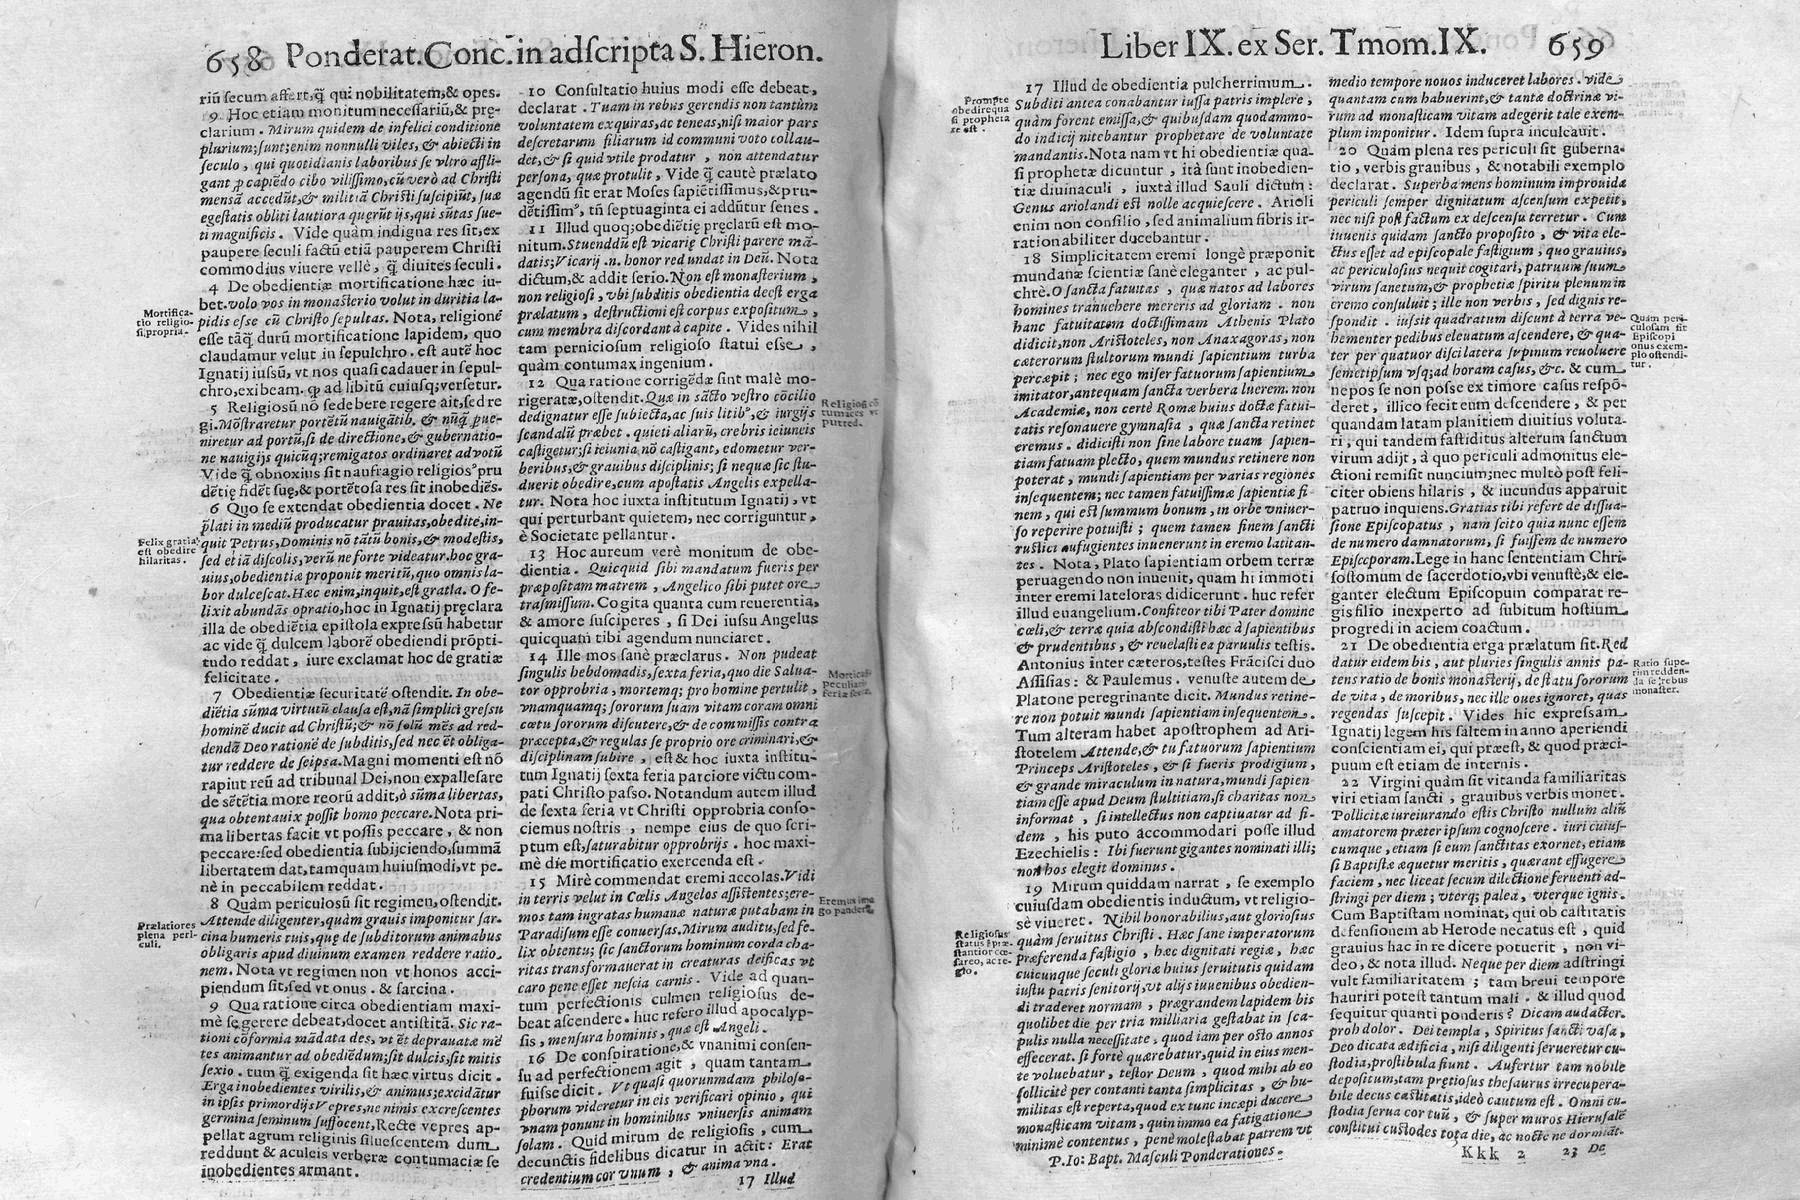 658 Ponderat. Conc. in adscripta S. Hieron.
riū secum affert, q̃ qui nobilitatem, & opes.
9 Hoc etiam monitum necessariū, & prę-
clarium. Mirum quidem de infelici conditione
plurium; sunt; enim nonnulli viles, & abiecti in
seculo, qui quotidianis laboribus se vltro affli-
gant ꝓ capiēdo cibo vilissimo, cū verò ad Christi
mensā accedūt, & militiā Christi suscipiūt, suæ
egestatis obliti lautiora quęrūt ijs, qui sūtas sue-
ti magnificis. Vide quàm indigna res sit, ex
paupere seculi factū etiā pauperem Christi
commodius viuere vellè, q̃ diuites seculi.
4 De obedientiæ mortificatione hæc iu-
bet. volo vos in monasterio volut in duritia la-
pidis esse cū Christo sepultas. Nota, religionē
esse tāq̃ durū mortificatione lapidem, quo
claudamur velut in sepulchro. est autē hoc
Ignatij iussū, vt nos quasi cadauer in sepul-
chro, exibeam. ꝙ ad libitū cuiusq; versetur.
5 Religiosū nō sedebere regere ait, sed re
gi. Mōstraretur portētū nauigātib. & nūq̃ ꝓue-
niretur ad portū, si de directione, & gubernatio-
ne nauigijs quicūq; remigatos ordinaret ad votū
Vide q̃ obnoxius sit naufragio religiosꝰ pru
dētię fidēt suę, & portētosa res sit inobediēs.
6 Quo se extendat obedientia docet. Ne
p̃lati in mediū producatur prauitas, obedite, in-
quit Petrus, Dominis nō tātū bonis, & modestis,
sed et iā discolis, verū ne forte videatur. hoc gra-
uius, obedientiæ proponit meritū, quo omnis la-
bor dulcescat. Hæc enim, inquit, est gratia. O fe-
lix it abundās opratio, hoc in Ignatij pręclara
illa de obediētia epistola expressū habetur
ac vide q̃ dulcem laborē obediendi prōpti-
tudo reddat, iure exclamat hoc de gratiæ
felicitate.
7 Obedientiæ securitatē ostendit. In obe-
diētia sūma virtutū clausa est, nā simplici gressu
hominē ducit ad Christū; & nō solū mēs ad red-
dendā Deo rationē de subditis, sed nec ēt obliga-
tur reddere de seipsa. Magni momenti est nō
rapi ut reū ad tribunal Dei, non expallesare
de sētētia more reorū addit, ò sūma libertas,
qua obtentauix possit homo peccare. Nota pri-
ma libertas facit vt possis peccare, & non
peccare: sed obedientia subijciendo, summā
libertatem dat, tamquam huiusmodi, vt pe-
nè in peccabilem reddat.
8 Quàm periculosū sit regimen, ostendit.
Attende diligenter, quàm grauis imponitur sar-
cina humeris tuis, quę de subditorum animabus
obligaris apud diuinum examen reddere ratio-
nem. Nota vt regimen non vt honos acci-
piendum sit, sed vt onus. & sarcina.
9 Qua ratione circa obedientiam maxi-
mè se gerere debeat, docet antistitā. Sic ra-
tioni cōformia mādata des, vt ēt deprauatæ mē
tes animantur ad obediēdum; sit dulcis, sit mitis
sexio. tum q̃ exigenda sit hæc virtus dicit.
Erga inobedientes virilis, & animus; excidātur
in ipsis primordijs Vepres, ne nimis excrescentes
germina seminum suffocent, Recte vepres ap-
pellat agrum religinis siluescentem dum
reddunt & aculeis verberæ contumaciæ se
inobedientes armant.
Mortifica-
tio religio-
si, propria.
Felix gratia
est obedire
hilaritas.
Prælatiores
plena peri-
culi.
10 Consultatio huius modi esse debeat,
declarat. Tuam in rebus gerendis non tantùm
voluntatem exquiras, ac teneas, nisi maior pars
descretarum filiarum id communi voto collau-
det, & si quid vtile prodatur, non attendatur
persona, quæ protulit, Vide q̃ cautè prælato
agendū sit erat Moses sapiētissimus, & pru-
dētissimꝰ, tñ septuaginta ei addūtur senes.
11 Illud quoq; obediētię pręclarū est mo-
nitum. Stuendū est vicarię Christi parere mā-
datis; Vicarij .n. honor redundat in Deū. Nota
dictum, & addit serio. Non est monasterium,
non religiosi, vbi subditis obedientia deest erga
prælatum, destructioni est corpus expositum,
cum membra discordant à capite. Vides nihil
tam perniciosum religioso statui esse,
quàm contumax ingenium.
12 Qua ratione corrigēdæ sint malè mo-
rigeratæ, ostendit. Quæ in sācto vestro cōcilio
dedignatur esse subiecta, ac suis litibꝰ, & iurgijs
scandalū præbet. quieti aliarū, crebris ieiuneis
castigetur; si ieiunia nō castigant, edometur ver-
beribus, & grauibus disciplinis; si nequæ sic stu-
duerit obedire, cum apostatis Angelis expella-
tur. Nota hoc iuxta institutum Ignatij, vt
qui perturbant quietem, nec corriguntur,
è Societate pellantur.
13 Hoc aureum verè monitum de obe-
dientia. Quicquid sibi mandatum fueris per
præpositam matrem, Angelico sibi putet ore
trāsmissum. Cogita quanta cum reuerentia,
& amore susciperes, si Dei iussu Angelus
quicquam tibi agendum nunciaret.
14 Ille mos sanè præclarus. Non pudeat
singulis hebdomadis, sexta feria, quo die Salua-
tor opprobria, mortemq; pro homine pertulit,
vnamquamq; sororum suam vitam coram omni
cœtu sororum discutere, & de commissis contra
præcepta, & regulas se proprio ore criminari, &
disciplinam subire, est & hoc iuxta institu-
tum Ignatij sexta feria parciore victu com-
pati Christo passo. Notandum autem illud
de sexta feria vt Christi opprobria conso-
ciemus nostris, nempe eius de quo scri-
ptum est, saturabitur opprobrijs. hoc maxi-
mè die mortificatio exercenda est.
15 Mirè commendat eremi accolas. Vidi
in terris velut in Cœlis Angelos assistentes; ere-
mos tam ingratas humanæ naturæ putabam in
Paradisum esse conuersas. Mirum auditu, sed fe-
lix obtentus; sic sanctorum hominum corda cha-
ritas transformauerat in creaturas deificas vt
caro pene esset nescia carnis. Vide ad quan-
tum perfectionis culmen religiosus de-
beat ascendere. huc refero illud apocalyp-
sis, mensura hominis, quæ est Angeli.
16 De conspiratione, & vnanimi consen-
su ad perfectionem agit, quam tantam
fuisse dicit. Vt quasi quorunmdam philoso-
phorum videretur in eis verificari opinio, qui
vnam ponunt in hominibus vniuersis animam
solam. Quid mirum de religiosis, cum
decunctis fidelibus dicatur in actit: Erat
credentium cor vnum, & anima vna.
17 Illud
Religiosi cō
tumaces vt
putred.
Mortica
peculiaris
feria sexta.
Eremus ima
go pander.
Liber IX. ex Ser. Tmom. IX. 659
17 Illud de obedientia pulcherrimum.
Subditi antea conabantur iussa patris implere,
quàm forent emissa, & quibusdam quodammo-
do indicij nitebantur prophetare de voluntate
mandantis. Nota nam vt hi obedientiæ qua-
si prophetæ dicuntur, ità sunt inobedien-
tiæ diuinaculi, iuxtà illud Sauli dictum:
Genus ariolandi est nolle acquiescere. Arioli
enim non consilio, sed animalium fibris ir-
rationabiliter ducebantur.
18 Simplicitatem eremi longè præponit
mundanæ scientiæ sanè eleganter, ac pul-
chrè. O sancta fatuitas, quæ natos ad labores
homines tranuehere mereris ad gloriam. non
hanc fatuitatem doctissimam Athenis Plato
didicit, non Aristoteles, non Anaxagoras, non
cæterorum stultorum mundi sapientium turba
percæpit; nec ego miser fatuorum sapientium
imitator, antequam sancta verbera luerem. non
Academiæ, non certè Romæ huius doctæ fatui-
tatis resonauere gymnasia, quæ sancta retinet
eremus. didicisti non sine labore tuam sapien-
tiam fatuam plecto, quem mundus retinere non
poterat, mundi sapientiam per varias regiones
insequentem; nec tamen fatuissimæ sapientiæ fi-
nem, qui est summum bonum, in orbe vniuer-
so reperire potuisti; quem tamen finem sancti
rustici aufugientes inuenerunt in eremo latitan-
tes. Nota, Plato sapientiam orbem terræ
peruagendo non inuenit, quam hi immoti
inter eremi lateloras didicerunt. huc refer
illud euangelium. Confiteor tibi Pater domine
cœli, & terræ quia abscondisti hæc à sapientibus
& prudentibus, & reuelasti ea paruulis testis.
Antonius inter cæteros, testes Frācisci duo
Assisias: & Paulemus. venuste autem de
Platone peregrinante dicit. Mundus retine-
re non potuit mundi sapientiam insequentem.
Tum alteram habet apostrophem ad Ari-
stotelem Attende, & tu fatuorum sapientium
Princeps Aristoteles, & si fueris prodigium,
& grande miraculum in natura, mundi sapien
tiam esse apud Deum stultitiam, si charitas non
informat, si intellectus non captiuatur ad fi-
dem, his puto accommodari posse illud
Ezechielis: Ibi fuerunt gigantes nominati illi;
non hos elegit dominus.
19 Mirum quiddam narrat, se exemplo
cuiusdam obedientis inductum, vt religio-
sè viueret. Nihil honorabilius, aut gloriosius
quàm seruitus Christi. Hæc sane imperatorum
præferenda fastigio, hæc dignitati regiæ, hæc
cuicunque seculi gloriæ huius seruitutis quidam
iustu patris senitorij, vt alijs iuuenibus obedien-
di traderet normam, prægrandem lapidem bis
quolibet die per tria milliaria gestabat in sca-
pulis nulla necessitate, quod iam per osto annos
effecerat. si fortè quærebatur, quid in eius men-
te voluebatur, testor Deum, quod mihi ab eo
sollicitè per contanti tanta simplicitas, & hu-
militas est reperta, quod ex tunc incæpi ducere
monasticam vitam, quin immo ea fatigatione
minimè contentus, penè molestabat patrem vt
P. Io: Bapt. Masculi Ponderationes.
Prompte
obedirequa
si prophetia
re est.
Religiosus
status præ-
stantior cœ-
sareo, ac re-
gio.
medio tempore nouos induceret labores. vide
quantam cum habuerint, & tantæ doctrinæ vi-
rum ad monasticam vitam adegerit tale exem-
plum imponitur. Idem supra inculcauit.
20 Quàm plena res periculi sit guberna-
tio, verbis grauibus, & notabili exemplo
declarat. Superba mens hominum improuida
periculi semper dignitatum ascensum expetit,
nec nisi post factum ex descensu terretur. Cum
iuuenis quidam sancto proposito, & vita ele-
ctus esset ad episcopale fastigium, quo grauius,
ac periculosius nequit cogitari, patruum suum
virum sanctum, & prophetiæ spiritu plenum in
eremo consuluit; ille non verbis, sed dignis re-
spondit. iussit quadratum discunt à terra ve-
hementer pedibus eleuatum ascendere, & qua-
ter per quatuor disci latera supinum reuoluere
semetipsum vsq; ad horam casus, &c. & cum
nepos se non posse ex timore casus respō-
deret, illico fecit eum descendere, & per
quandam latam planitiem diuitius voluta-
ri, qui tandem fastiditus alterum sanctum
virum adijt, à quo periculi admonitus ele-
ctioni remisit nuncium; nec multò post feli-
citer obiens hilaris, & iucundus apparuit
patruo inquiens. Gratias tibi refert de dissua-
sione Episcopatus, nam scito quia nunc essem
de numero damnatorum, si fuissem de numero
Episcoporam. Lege in hanc sententiam Chri-
sostomum de sacerdotio, vbi venustè, & ele-
ganter electum Episcopuin comparat re-
gis filio inexperto ad subitum hostium
progredi in aciem coactum.
21 De obedientia erga prælatum sit. Red
datur eidem bis, aut pluries singulis annis pa-
tens ratio de bonis monasterij, de statu sororum
de vita, de moribus, nec ille oues ignoret, quas
regendas suscepit. Vides hic expressam
Ignatij legem his saltem in anno aperiendi
conscientiam ei, qui præest, & quod præci-
puum est etiam de internis.
22 Virgini quàm sit vitanda familiaritas
viri etiam sancti, grauibus verbis monet.
Pollicitæ iureiurando estis Christo nullum aliū
amatorem præter ipsum cognoscere. iuri cuius-
cumque, etiam si eum sanctitas exornet, etiam
si Baptistæ æquetur meritis, quærant effugere
faciem, nec liceat secum dilectione feruenti ad-
stringi per diem; vterq; palea, vterque ignis.
Cum Baptistam nominat, qui ob castitatis
defensionem ab Herode necatus est, quid
grauius hac in re dicere potuerit, non vi-
deo, & nota illud. Neque per diem adstringi
vult familiaritatem; tam breui tempore
hauriri potest tantum mali. & illud quod
sequitur quanti ponderis? Dicam audacter.
proh dolor. Dei templa, Spiritus sancti vasa,
Deo dicata ædificia, nisi diligenti serueretur cu-
stodia, prostibula fiunt. Aufertur tam nobile
depositum, tam pretiosus thesaurus irrecupera-
bile decus castitatis, ideò cautum est. Omni cu-
stodia serua cor tuū, & super muros Hierusalē
constitui custodes tota die, ac nocte ne dormiāt.
Kkk 2 23 De
Quàm peri-
culosam sit
Episcopi
onus exem-
plo ostendi-
tur.
Ratio supe-
rim redden-
da se rebus
monaster.